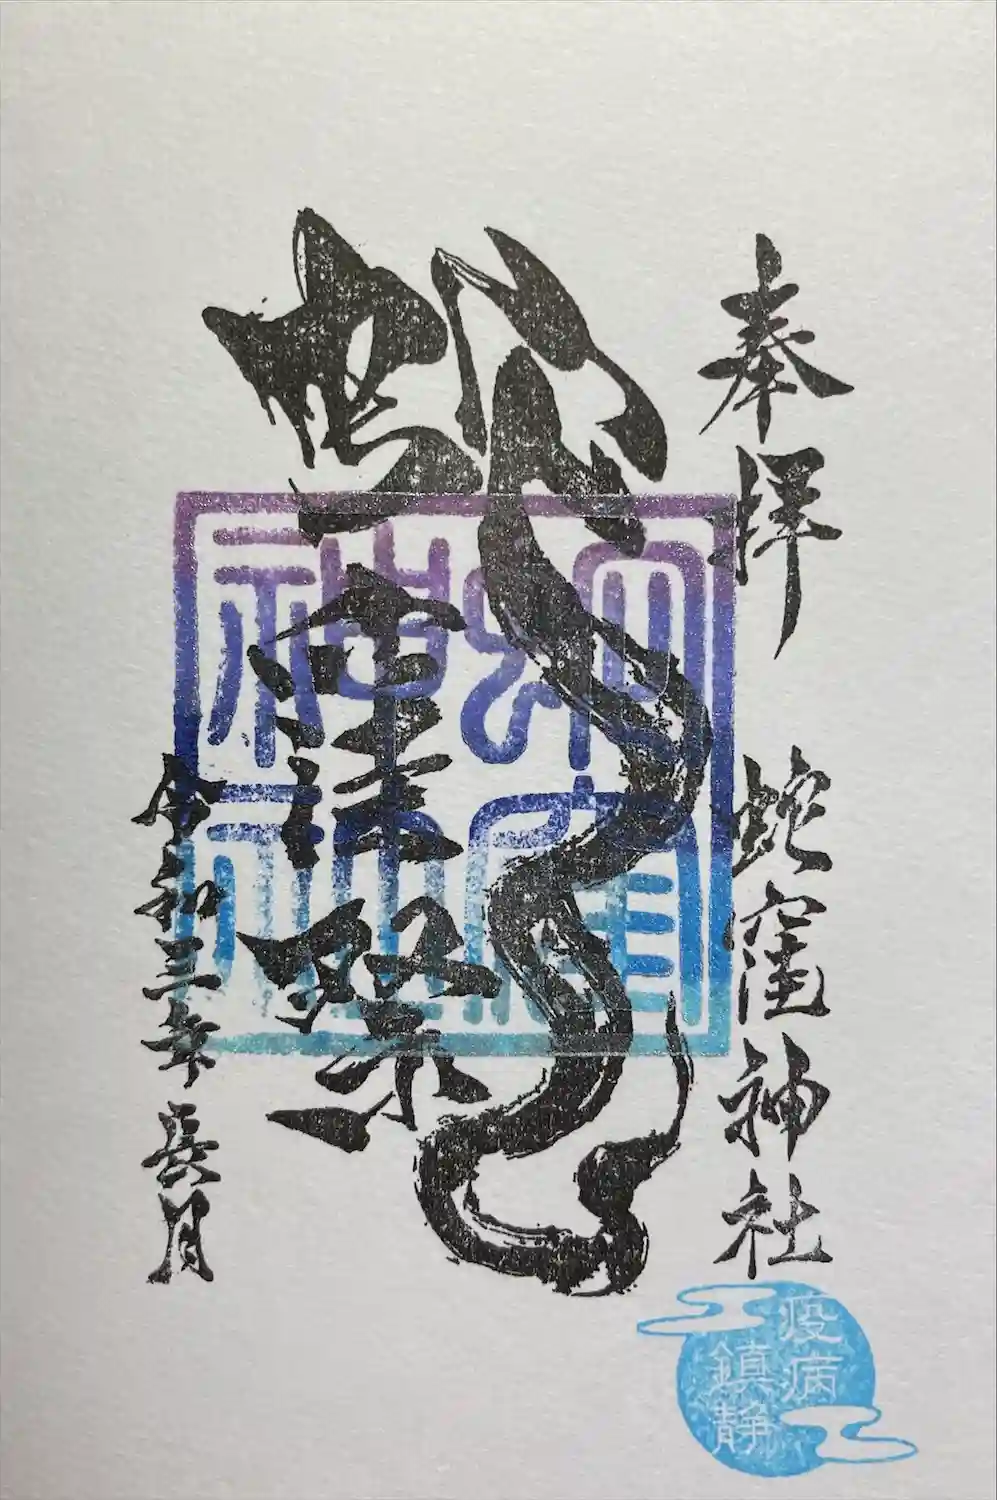 奉拝
蛇窪神社
蛇
蛇窪
神社
令和三年長月
疫病
鎮静